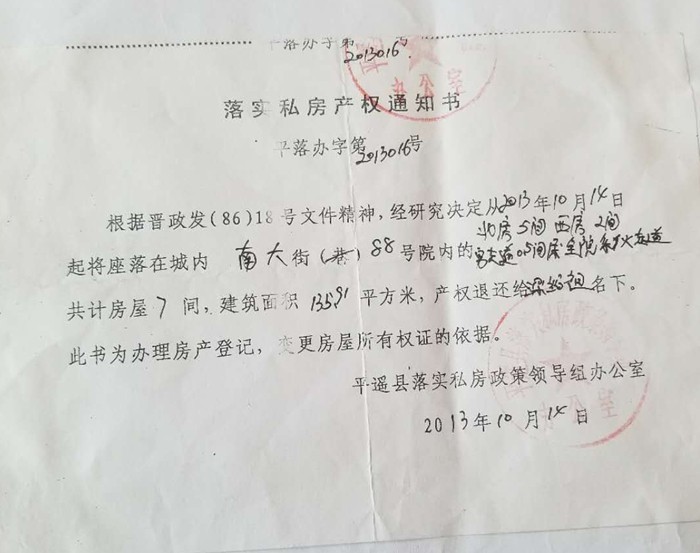 平落办字第2013016号
办公室
落实私房产权通知书
平落办字第2013016号
根据晋政发(86)18号文件精神，经研究决定从2013年10月14日
北房5间 西房2间
起将座落在城内 南大街(巷)88号院内的
共计房屋7间，建筑面积135.91平方米，产权退还给 名下。
此书为办理房产登记，变更房屋所有权证的依据。
平遥县落实私房政策领导组办公室
2013年10月14日
办公室